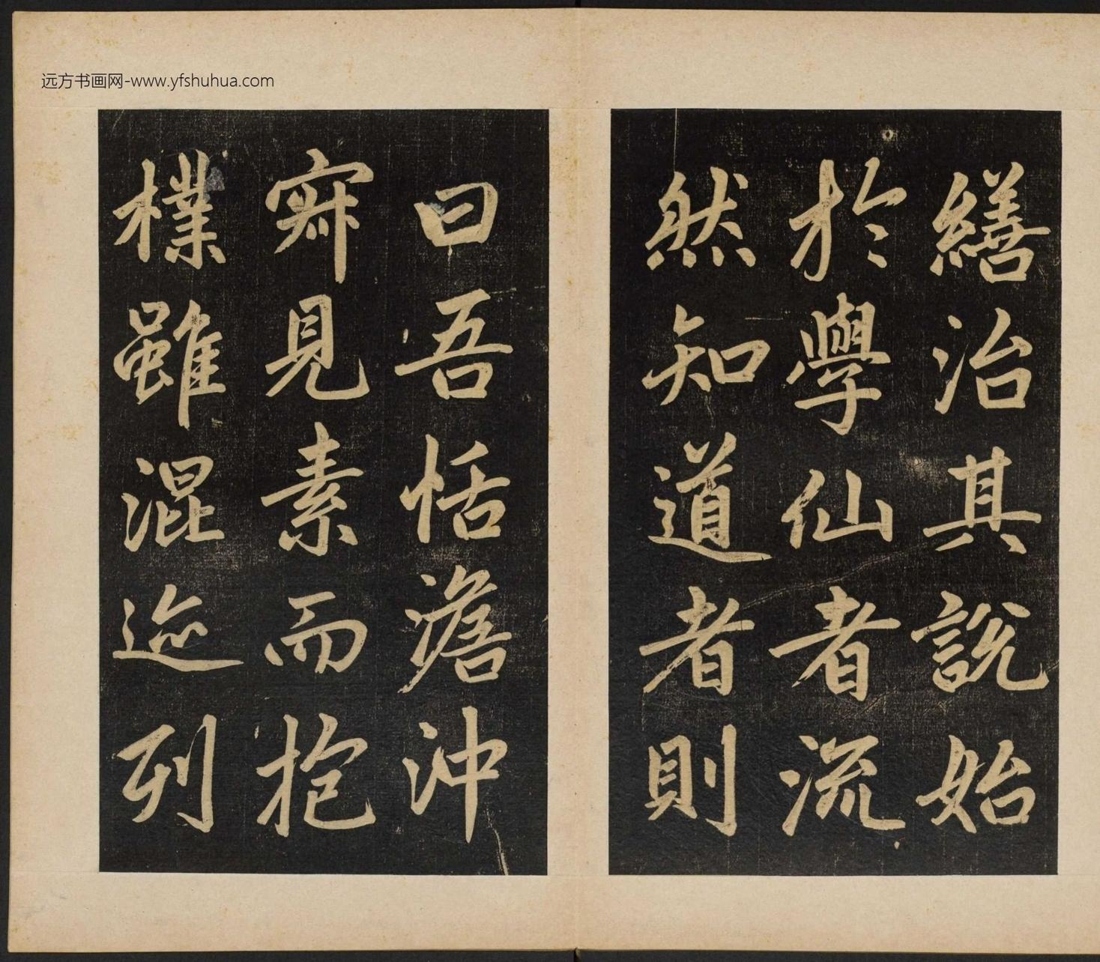 远方书画网-www.yfshuhua.com
繕治其說始
於學仙者流
然知道者則
曰吾恬澹沖
寂見素而抱
樸雖混迹列